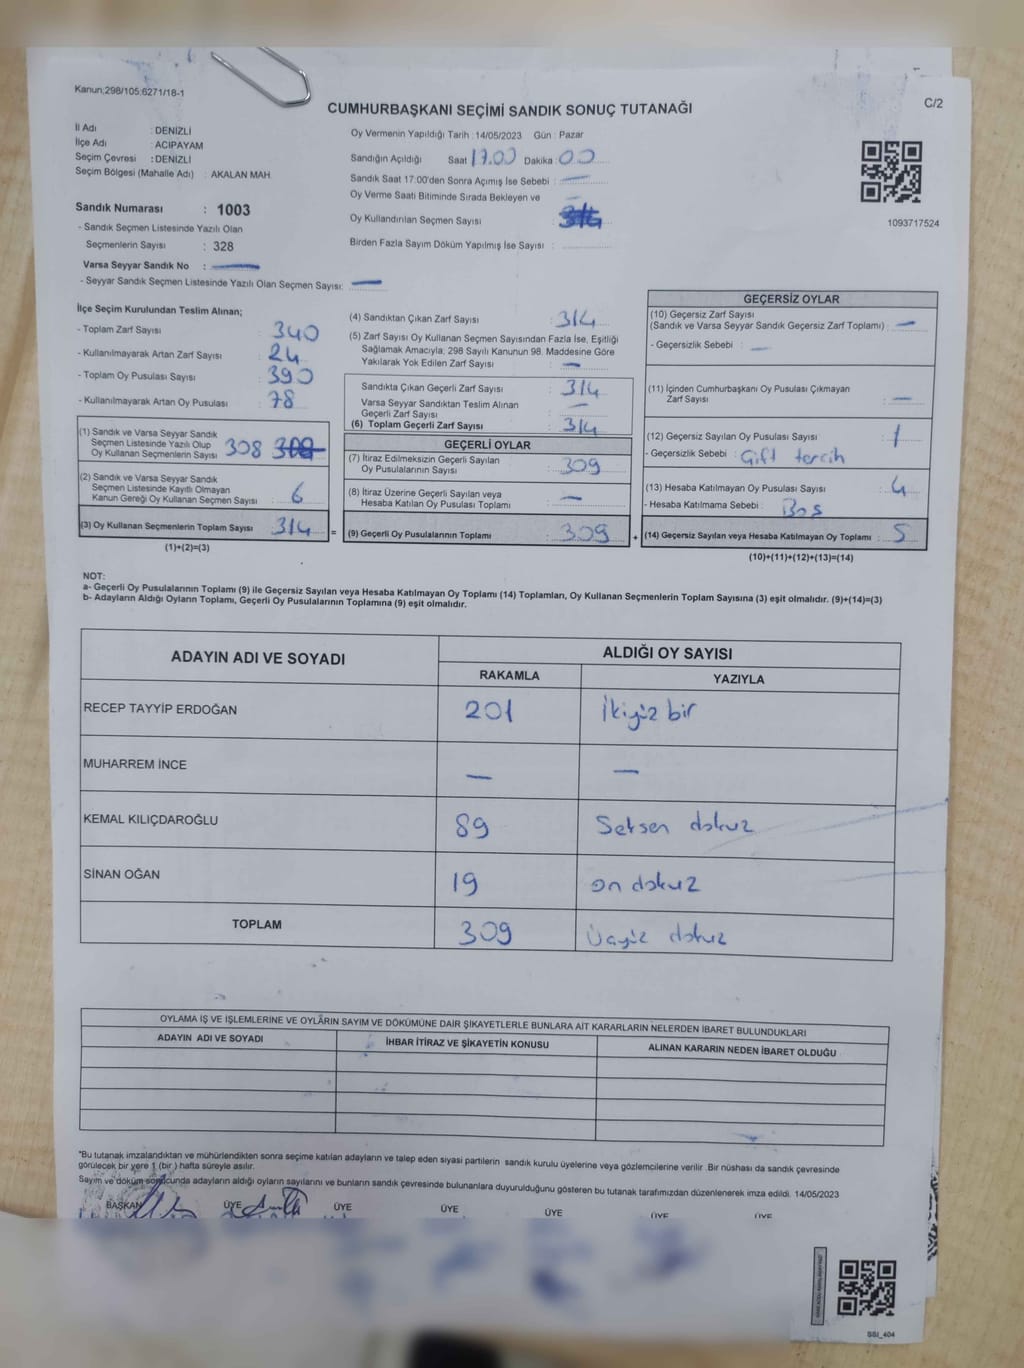 Kanun:298/105,6271/18-1
CUMHURBAŞKANI SEÇİMİ SANDIK SONUÇ TUTANAĞI
C/2
İl Adı : DENİZLİ
İlçe Adı : ACIPAYAM
Seçim Çevresi : DENİZLİ
Seçim Bölgesi (Mahalle Adı) : AKALAN MAH
Sandık Numarası : 1003
- Sandık Seçmen Listesinde Yazılı Olan
Seçmenlerin Sayısı : 328
Varsa Seyyar Sandık No : —
- Seyyar Sandık Seçmen Listesinde Yazılı Olan Seçmen Sayısı: —
Oy Vermenin Yapıldığı Tarih : 14/05/2023 Gün : Pazar
Sandığın Açıldığı Saat 17.00 Dakika : 00
Sandık Saat 17:00'den Sonra Açımış İse Sebebi : —
Oy Verme Saati Bitiminde Sırada Bekleyen ve
Oy Kullandırılan Seçmen Sayısı : 314
Birden Fazla Sayım Döküm Yapılmış İse Sayısı :
1093717524
İlçe Seçim Kurulundan Teslim Alınan;
- Toplam Zarf Sayısı : 340
- Kullanılmayarak Artan Zarf Sayısı : 24
- Toplam Oy Pusulası Sayısı : 390
- Kullanılmayarak Artan Oy Pusulası : 78
(1) Sandık ve Varsa Seyyar Sandık
Seçmen Listesinde Yazılı Olup
Oy Kullanan Seçmenlerin Sayısı 308
(2) Sandık ve Varsa Seyyar Sandık
Seçmen Listesinde Kayıtlı Olmayan
Kanun Gereği Oy Kullanan Seçmen Sayısı : 6
(3) Oy Kullanan Seçmenlerin Toplam Sayısı : 314 =
(1)+(2)=(3)
(4) Sandıktan Çıkan Zarf Sayısı : 314
(5) Zarf Sayısı Oy Kullanan Seçmen Sayısından Fazla İse, Eşitliği
Sağlamak Amacıyla; 298 Sayılı Kanunun 98. Maddesine Göre
Yakılarak Yok Edilen Zarf Sayısı : —
Sandıkta Çıkan Geçerli Zarf Sayısı : 314
Varsa Seyyar Sandıktan Teslim Alınan
Geçerli Zarf Sayısı : —
(6) Toplam Geçerli Zarf Sayısı : 314
GEÇERLİ OYLAR
(7) İtiraz Edilmeksizin Geçerli Sayılan
Oy Pusulalarının Sayısı : 309
(8) İtiraz Üzerine Geçerli Sayılan veya
Hesaba Katılan Oy Pusulası Toplamı : —
(9) Geçerli Oy Pusulalarının Toplamı : 309 +
GEÇERSİZ OYLAR
(10) Geçersiz Zarf Sayısı
(Sandık ve Varsa Seyyar Sandık Geçersiz Zarf Toplamı) : —
- Geçersizlik Sebebi : —
(11) İçinden Cumhurbaşkanı Oy Pusulası Çıkmayan
Zarf Sayısı : —
(12) Geçersiz Sayılan Oy Pusulası Sayısı : 1
- Geçersizlik Sebebi : Çift tercih
(13) Hesaba Katılmayan Oy Pusulası Sayısı : 4
- Hesaba Katılmama Sebebi : Boş
(14) Geçersiz Sayılan veya Hesaba Katılmayan Oy Toplamı : 5
(10)+(11)+(12)+(13)=(14)
NOT:
a- Geçerli Oy Pusulalarının Toplamı (9) ile Geçersiz Sayılan veya Hesaba Katılmayan Oy Toplamı (14) Toplamları, Oy Kullanan Seçmenlerin Toplam Sayısına (3) eşit olmalıdır. (9)+(14)=(3)
b- Adayların Aldığı Oyların Toplamı, Geçerli Oy Pusulalarının Toplamına (9) eşit olmalıdır.
ADAYIN ADI VE SOYADI
ALDIĞI OY SAYISI
RAKAMLA YAZIYLA
RECEP TAYYİP ERDOĞAN 201 İkiyüz bir
MUHARREM İNCE — —
KEMAL KILIÇDAROĞLU 89 Seksen dokuz
SİNAN OĞAN 19 on dokuz
TOPLAM 309 Üçyüz dokuz
OYLAMA İŞ VE İŞLEMLERİNE VE OYLARIN SAYIM VE DÖKÜMÜNE DAİR ŞİKAYETLERLE BUNLARA AİT KARARLARIN NELERDEN İBARET BULUNDUKLARI
ADAYIN ADI VE SOYADI İHBAR İTİRAZ VE ŞİKAYETİN KONUSU ALINAN KARARIN NEDEN İBARET OLDUĞU
*Bu tutanak imzalandıktan ve mühürlendikten sonra seçime katılan adayların ve talep eden siyasi partilerin sandık kurulu üyelerine veya gözlemcilerine verilir .Bir nüshası da sandık çevresinde
görülecek bir yere 1 (bir ) hafta süreyle asılır.
Sayım ve döküm sonucunda adayların aldığı oyların sayılarını ve bunların sandık çevresinde bulunanlara duyurulduğunu gösteren bu tutanak tarafımızdan düzenlenerek imza edildi. 14/05/2023
BAŞKAN ÜYE ÜYE ÜYE ÜYE ÜYE ÜYE
SSI_404